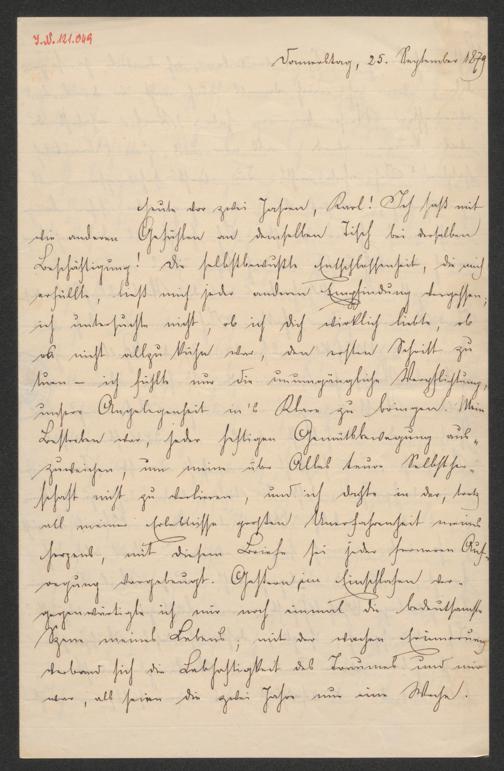 J.N. 121.049
Donnerstag, 25. September 1879
Heute vor zwei Jahren, Karl! Ich saß mit
wie anderen Gefühlen an demselben Tisch bei derselben
Beschäftigung! Die selbstbewußte Entschlossenheit, die mich
erfüllte, ließ mich jede andere Empfindung vergessen;
ich untersuchte nicht, ob ich dich wirklich liebte, ob
es nicht allzu kühn war, den ersten Schritt zu
tuen – ich fühlte nur die unumgängliche Verpflichtung,
unsere Angelegenheit in's Klare zu bringen. Mein
Bestreben war, jeder heftigen Gemütsbewegung aus-
zuweichen, um meine über Alles teure Selbstbe-
herrschaft nicht zu verlieren, und ich dachte in der, trotz
all meiner Erlebnisse großen Unerfahrenheit meines
Herzens, mit diesem Briefe sei jeder ferneren Auf-
regung vorgebeugt. Gestern, im Einschlafen ver-
gegenwärtigte ich mir noch einmal die bedeutsamste
Szene meines Lebens; mit der wachen Erinnerung
verband sich die Lebhaftigkeit des Traumes und mir
war, als seien die zwei Jahre nur eine Woche.